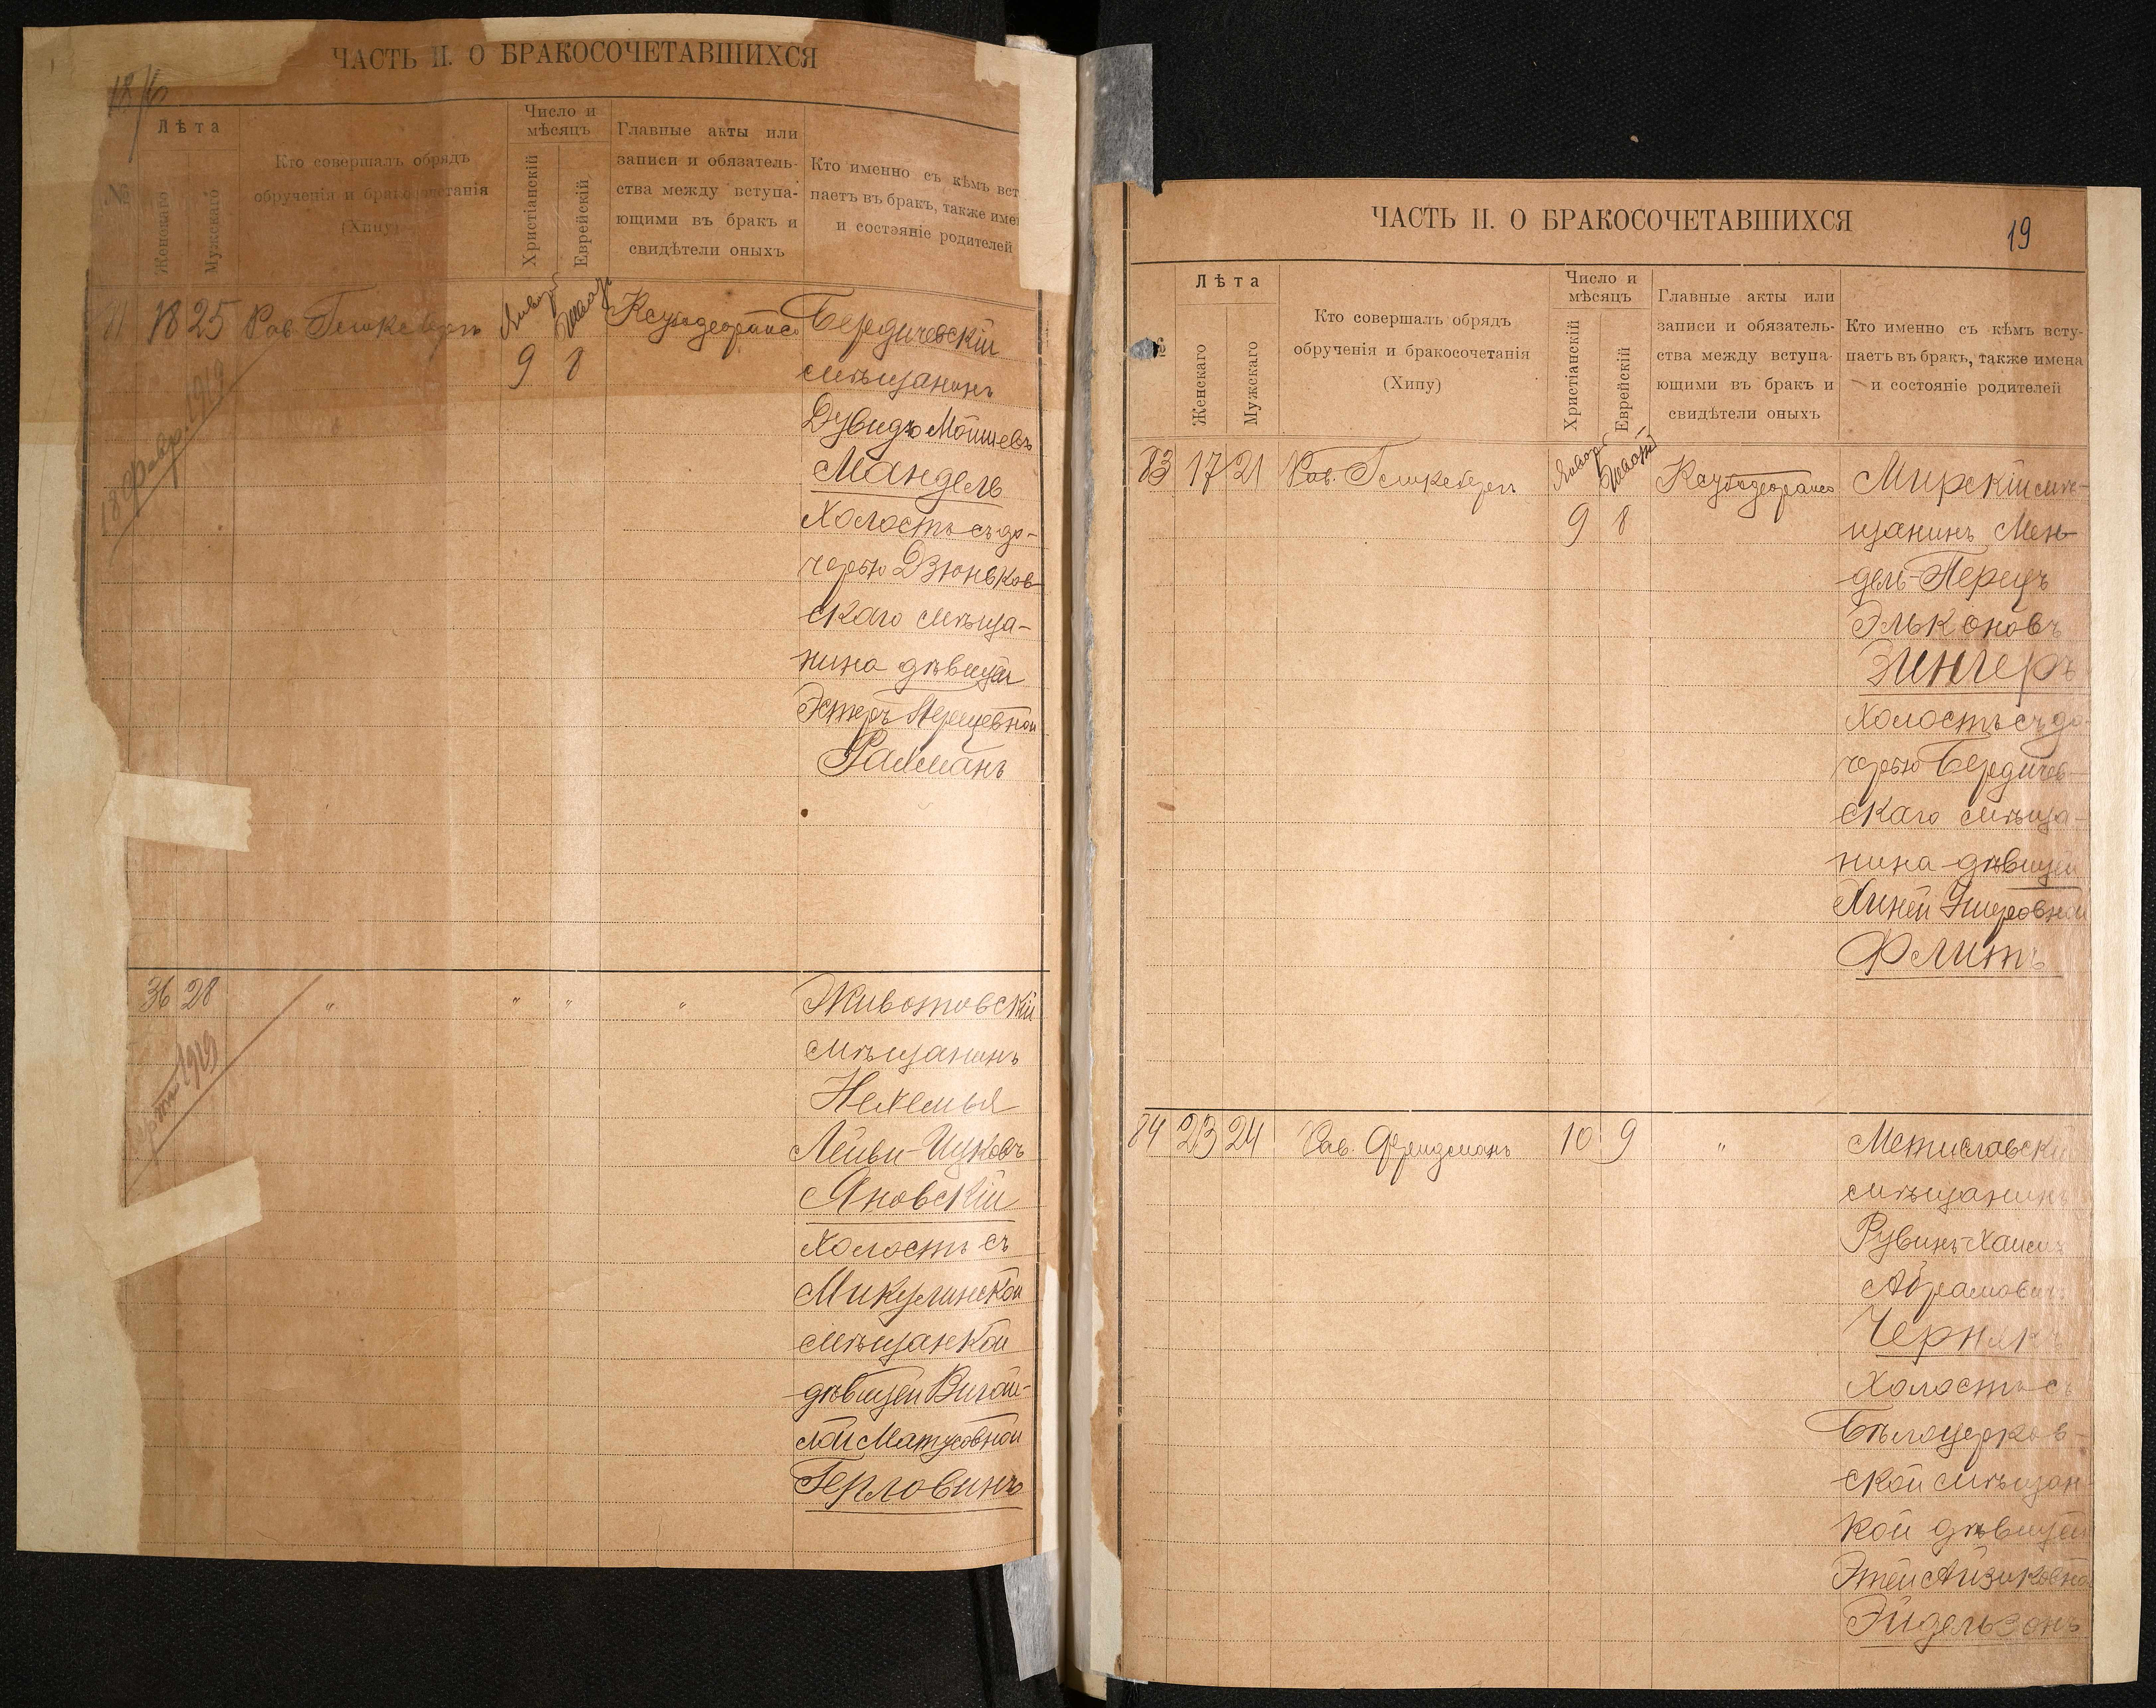 ЧАСТЬ II. О БРАКОСОЧЕТАВШИХСЯ
18
№
Лѣта
Женскаго
Мужскаго
Кто совершалъ обрядъ
обрученія и бракосочетанія
(Хипу)
Число и
мѣсяцъ
Христіанскій
Еврейскій
Главные акты или
записи и обязатель-
ства между вступа-
ющими въ бракъ и
свидѣтели оныхъ
Кто именно съ кѣмъ вст
паетъ въ бракъ, также имен
и состэяніе родителей
81 18 25 Рав. 9 8
Бердичевскій
мѣщанинъ
Дувидъ Мошиевъ
Мандель
холостъ съ до-
черью Дзюньков-
скаго мѣща-
нина дѣвицей
Эстеръ Перецевной
Рахманъ
18 февр. 1919
36 28 " " " "
Животовскій
мѣщанинъ
Нехемья
Лейви-Ицковъ
Яновскій
холостъ съ
Микулинской
мѣщанкой
дѣвицей
Матусовной
Герловинъ
1919
ЧАСТЬ II. О БРАКОСОЧЕТАВШИХСЯ
19
№
Лѣта
Женскаго
Мужскаго
Кто совершалъ обрядъ
обрученія и бракосочетанія
(Хипу)
Число и
мѣсяцъ
Христіанскій
Еврейскій
Главные акты или
записи и обязатель-
ства между вступа-
ющими въ бракъ и
свидѣтели оныхъ
Кто именно съ кѣмъ всту-
паетъ въ бракъ, также имена
и состояніе родителей
83 17 21 Рав. 9 8
Мирскій мѣ-
щанинъ Мен-
дель-Перецъ
Эльконовъ
Зингеръ
холостъ съ до-
черью Бердичев-
скаго мѣща-
нина дѣвицей
Хиней Ушеровной
Флитъ
84 23 24 Рав. Фридманъ 10 9 "
Мстиславскій
мѣщанинъ
Рувинъ-Хаимъ
Абрамовичъ
Чернякъ
холостъ съ
Бѣлоцерков-
ской мѣщан-
кой дѣвицей
Этей Айзиковной
Эйдельзонъ